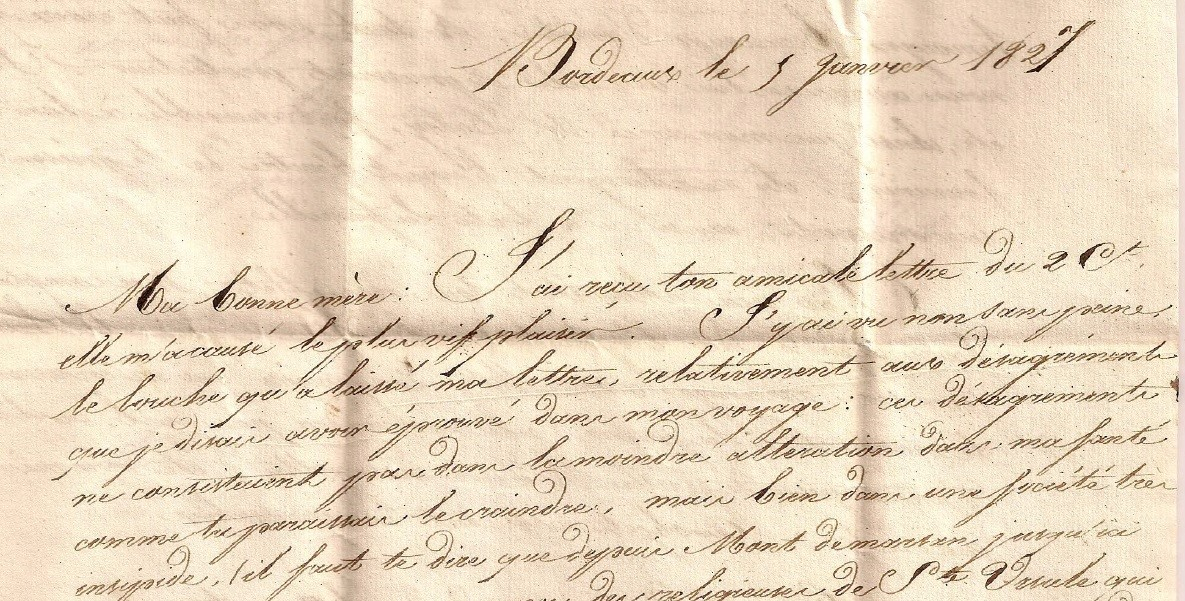 Bordeaux le 5 janvier 1827
Ma bonne mère : J'ai reçu ton amicale lettre du 2 Ct.
elle m'a causé le plus vif plaisir. J'y ai vu non sans peine,
le louche qu'a laissé ma lettre, relativement aux désagréments
que je disais avoir éprouvé dans mon voyage : ces désagréments
ne consistaient pas dans la moindre altération dans ma santé
comme tu paraissais le craindre, mais bien dans une société très
insipide, il faut te dire que depuis Mont demarsan jusqu'ici
des religieuses de Ste Ursule qui